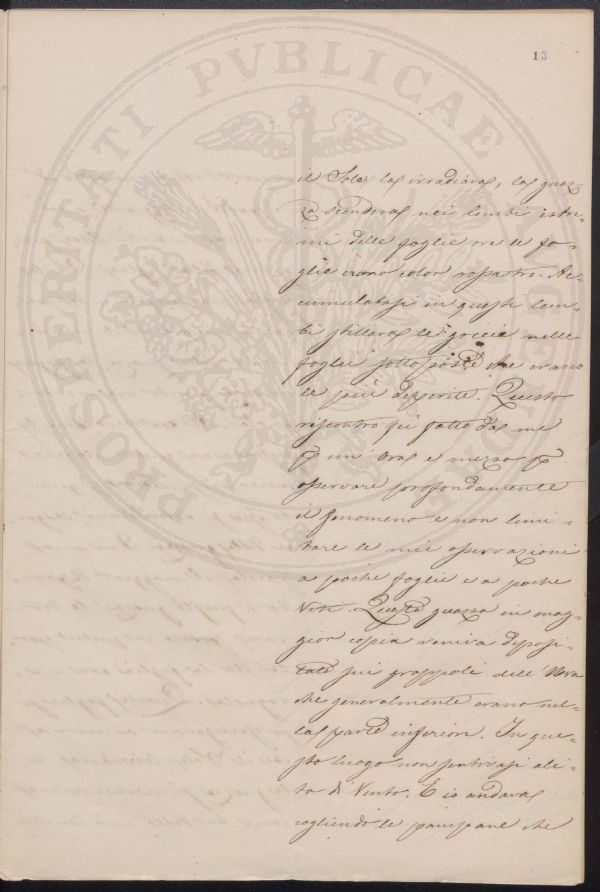 13
PROSPERITATI PVBLICAE AVGENDAE
il Sole la irradiava, la guaz-
za scendeva nei lembi estre-
mi delle foglie ove le fo-
glie erano color rossastro. Ac-
cumulatasi in questi lem-
bi stillava le goccie nelle
foglie sottoposte che erano
le più deperite. Questo
riscontro fu fatto da me
p un ora e mezzo p
osservare profondamente
il fenomeno e non limi-
tare le mie osservazioni
a poche foglie e a poche
Viti. Questa guazza in mag-
gior copia veniva deposi-
tata sui grappoli dell'Uva
che generalmente erano nel-
la parte inferiore. In que-
sto luogo non sentivasi ali-
to di Vento. E io andava
cogliendo le pampane che